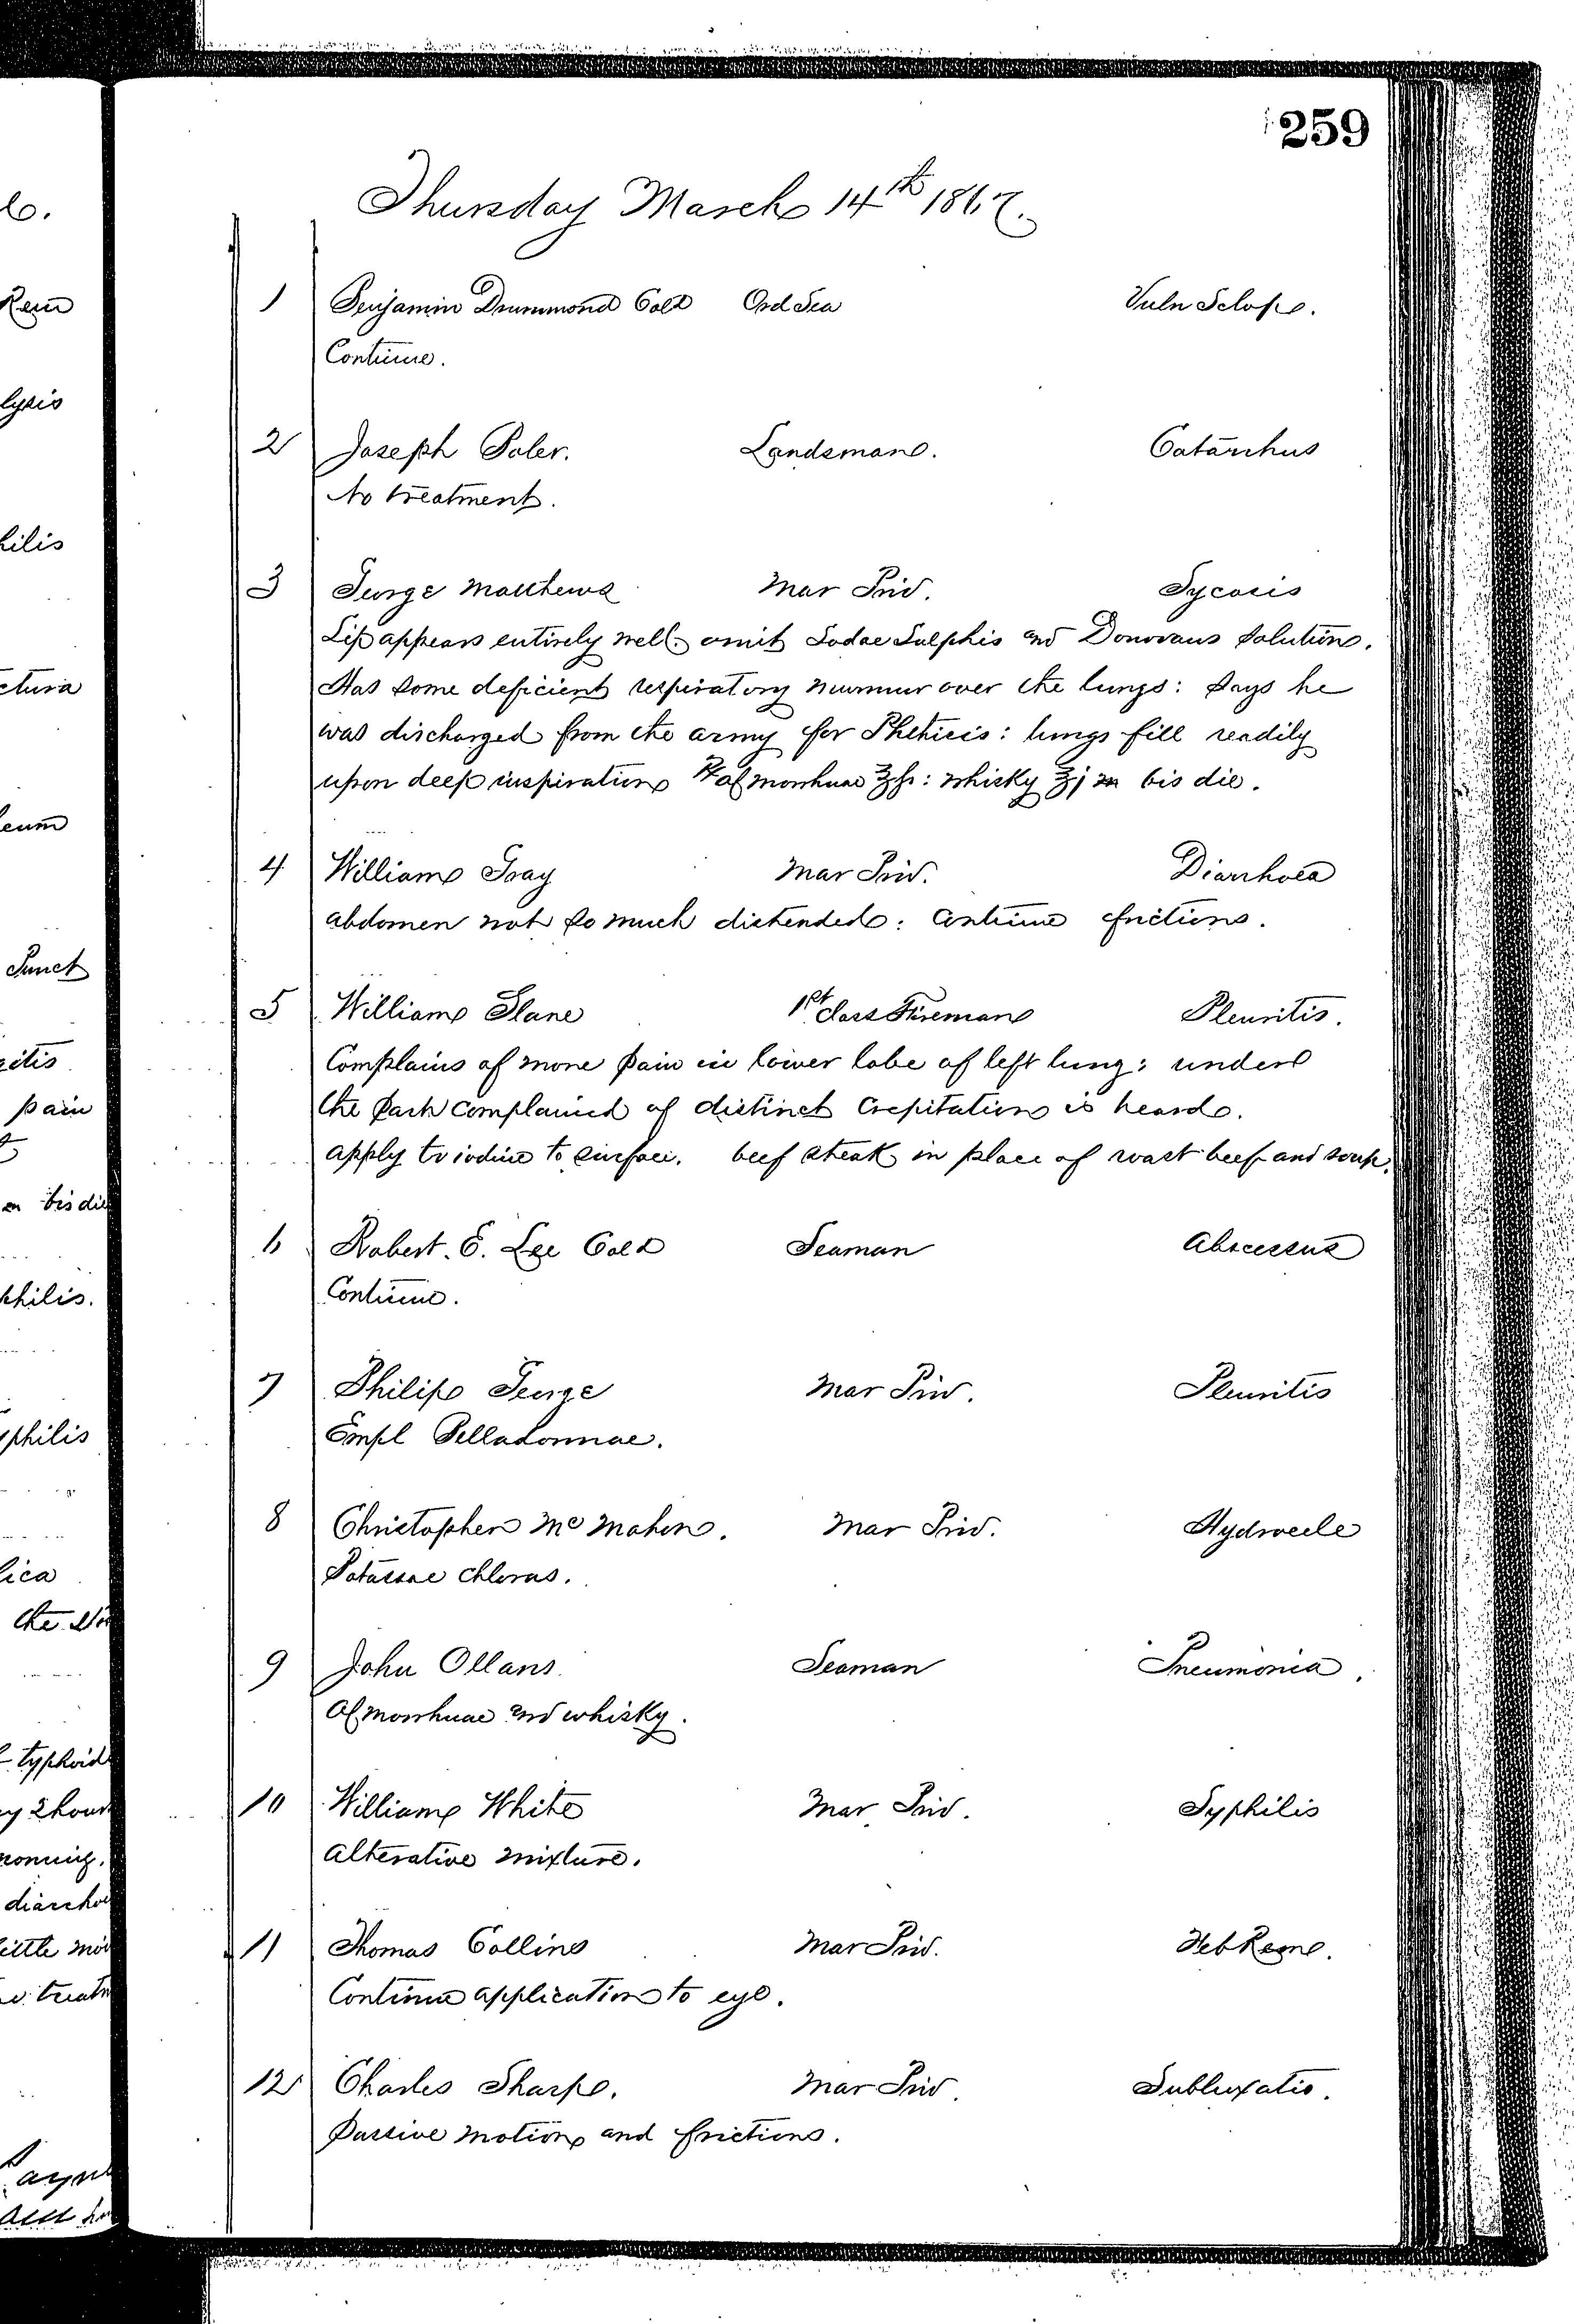 259
Thursday March 14th 1867.
1 Benjamin Drummond Cold Ord Sea Vuln Sclope.
Continue.
2 Joseph Boler. Landsman. Catarrhus
No treatment.
3 George Matthews Mar Priv. Sycosis
Lip appears entirely well. omit Sodae Sulphis and Donovans Solution.
Has some deficient respiratory murmur over the lungs: Says he
was discharged from the army for Phthisis: lungs fill readily
upon deep inspiration ℞ Ol morrhuae ℥ss: whisky ℥j m bis die.
4 William Gray Mar Priv. Diarrhoea
abdomen not so much distended: Continue frictions.
5 William Slane 1st class Fireman Pleuritis.
Complains of more pain in lower lobe of left lung: under
the part complained of distinct Crepitation is heard.
apply tr iodine to surface. beef steak in place of roast beef and soup.
6 Robert. E. Lee Cold Seaman Abscessus
Continue.
7 Philip George Mar Priv. Pleuritis
Empl Belladonnae.
8 Christopher Mc Mahon. Mar Priv. Hydrocele
Potassae chloras.
9 John Ollans. Seaman Pneumonia.
Ol morrhuae and whisky.
10 William White Mar Priv. Syphilis
Alterative mixture.
11 Thomas Collins Mar Priv. Feb Rem.
Continue application to eye.
12 Charles Sharpe. Mar Priv. Subluxatio.
Passive motion and frictions.